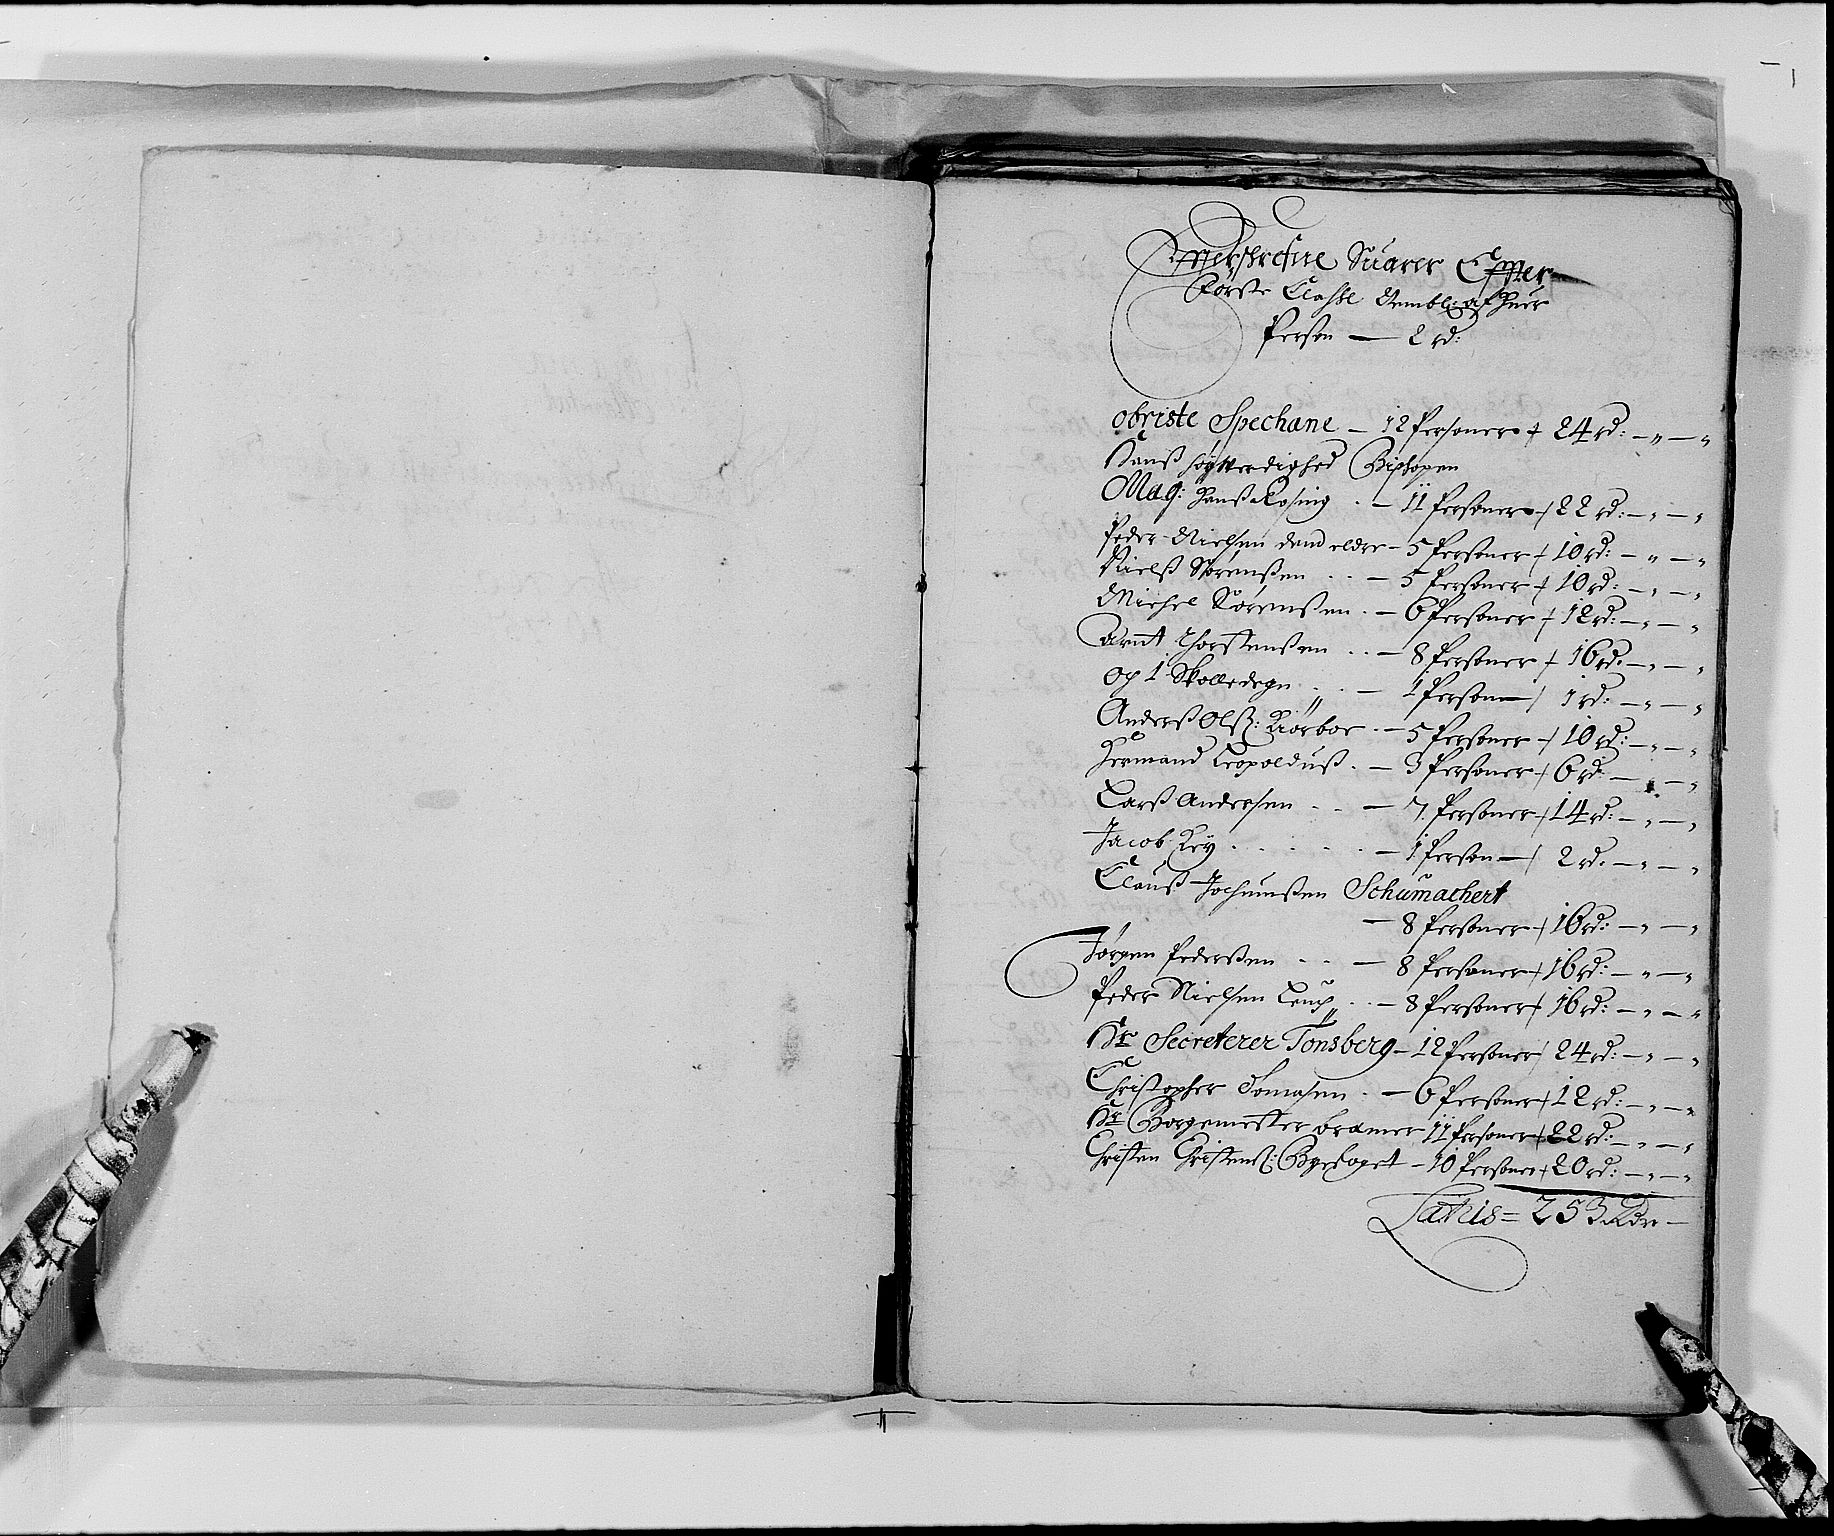 Effterskrefne Suarer Effter
Første Classe Nembl: af Huer
Person — 2 rd:
Obriste Spechane — 12 Personer / 24 rd: — „ — „
Hanß höyverdighed Bischopen
Mag: Hanß Rosing . — 11 Personer / 22 rd: — „ — „
Peder Nielsen dend eldre — 5 Personer / 10 rd: — „ — „
Nielß Sørenßen . . — 5 Personer / 10 rd: — „ — „
Michel Sørenßen . — 6 Personer / 12 rd: — „ — „
Arnt Thorstenßen . . — 8 Personer / 16 rd. — „ — „
og 1 Skolledegn . . — 1 Person — / 1 rd: — „ — „
Anderß Olß: Kiørboe . — 5 Personer / 10 rd: — „ — „
Hermand Leopolduß . — 3 Personer / 6 rd — „ — „
Larß Andersen . . — 7 Personer / 14 rd: — „ — „
Jacob Key . . . . . — 1 Person — / 2 rd. — „ — „
Clauß Jochumßen Schumachert
— 8 Personer / 16 rd: — „ — „
Jørgen Pederßen . . — 8 Personer / 16 rd: — „ — „
Peder Nielsen Leuch . . — 8 Personer / 16 rd: — „ — „
Hr Secreterer Tonsberg — 12 Personer / 24 rd: — „ — „
Christopher Tomasen . — 6 Personer / 12 rd: — „ — „
Hr Borgemester Bremer 11 Personer / 22 rd: — „ — „
Christen Christenß: Byefoget — 10 Personer / 20 rd: — „ — „
Latus = 253 Rdr —